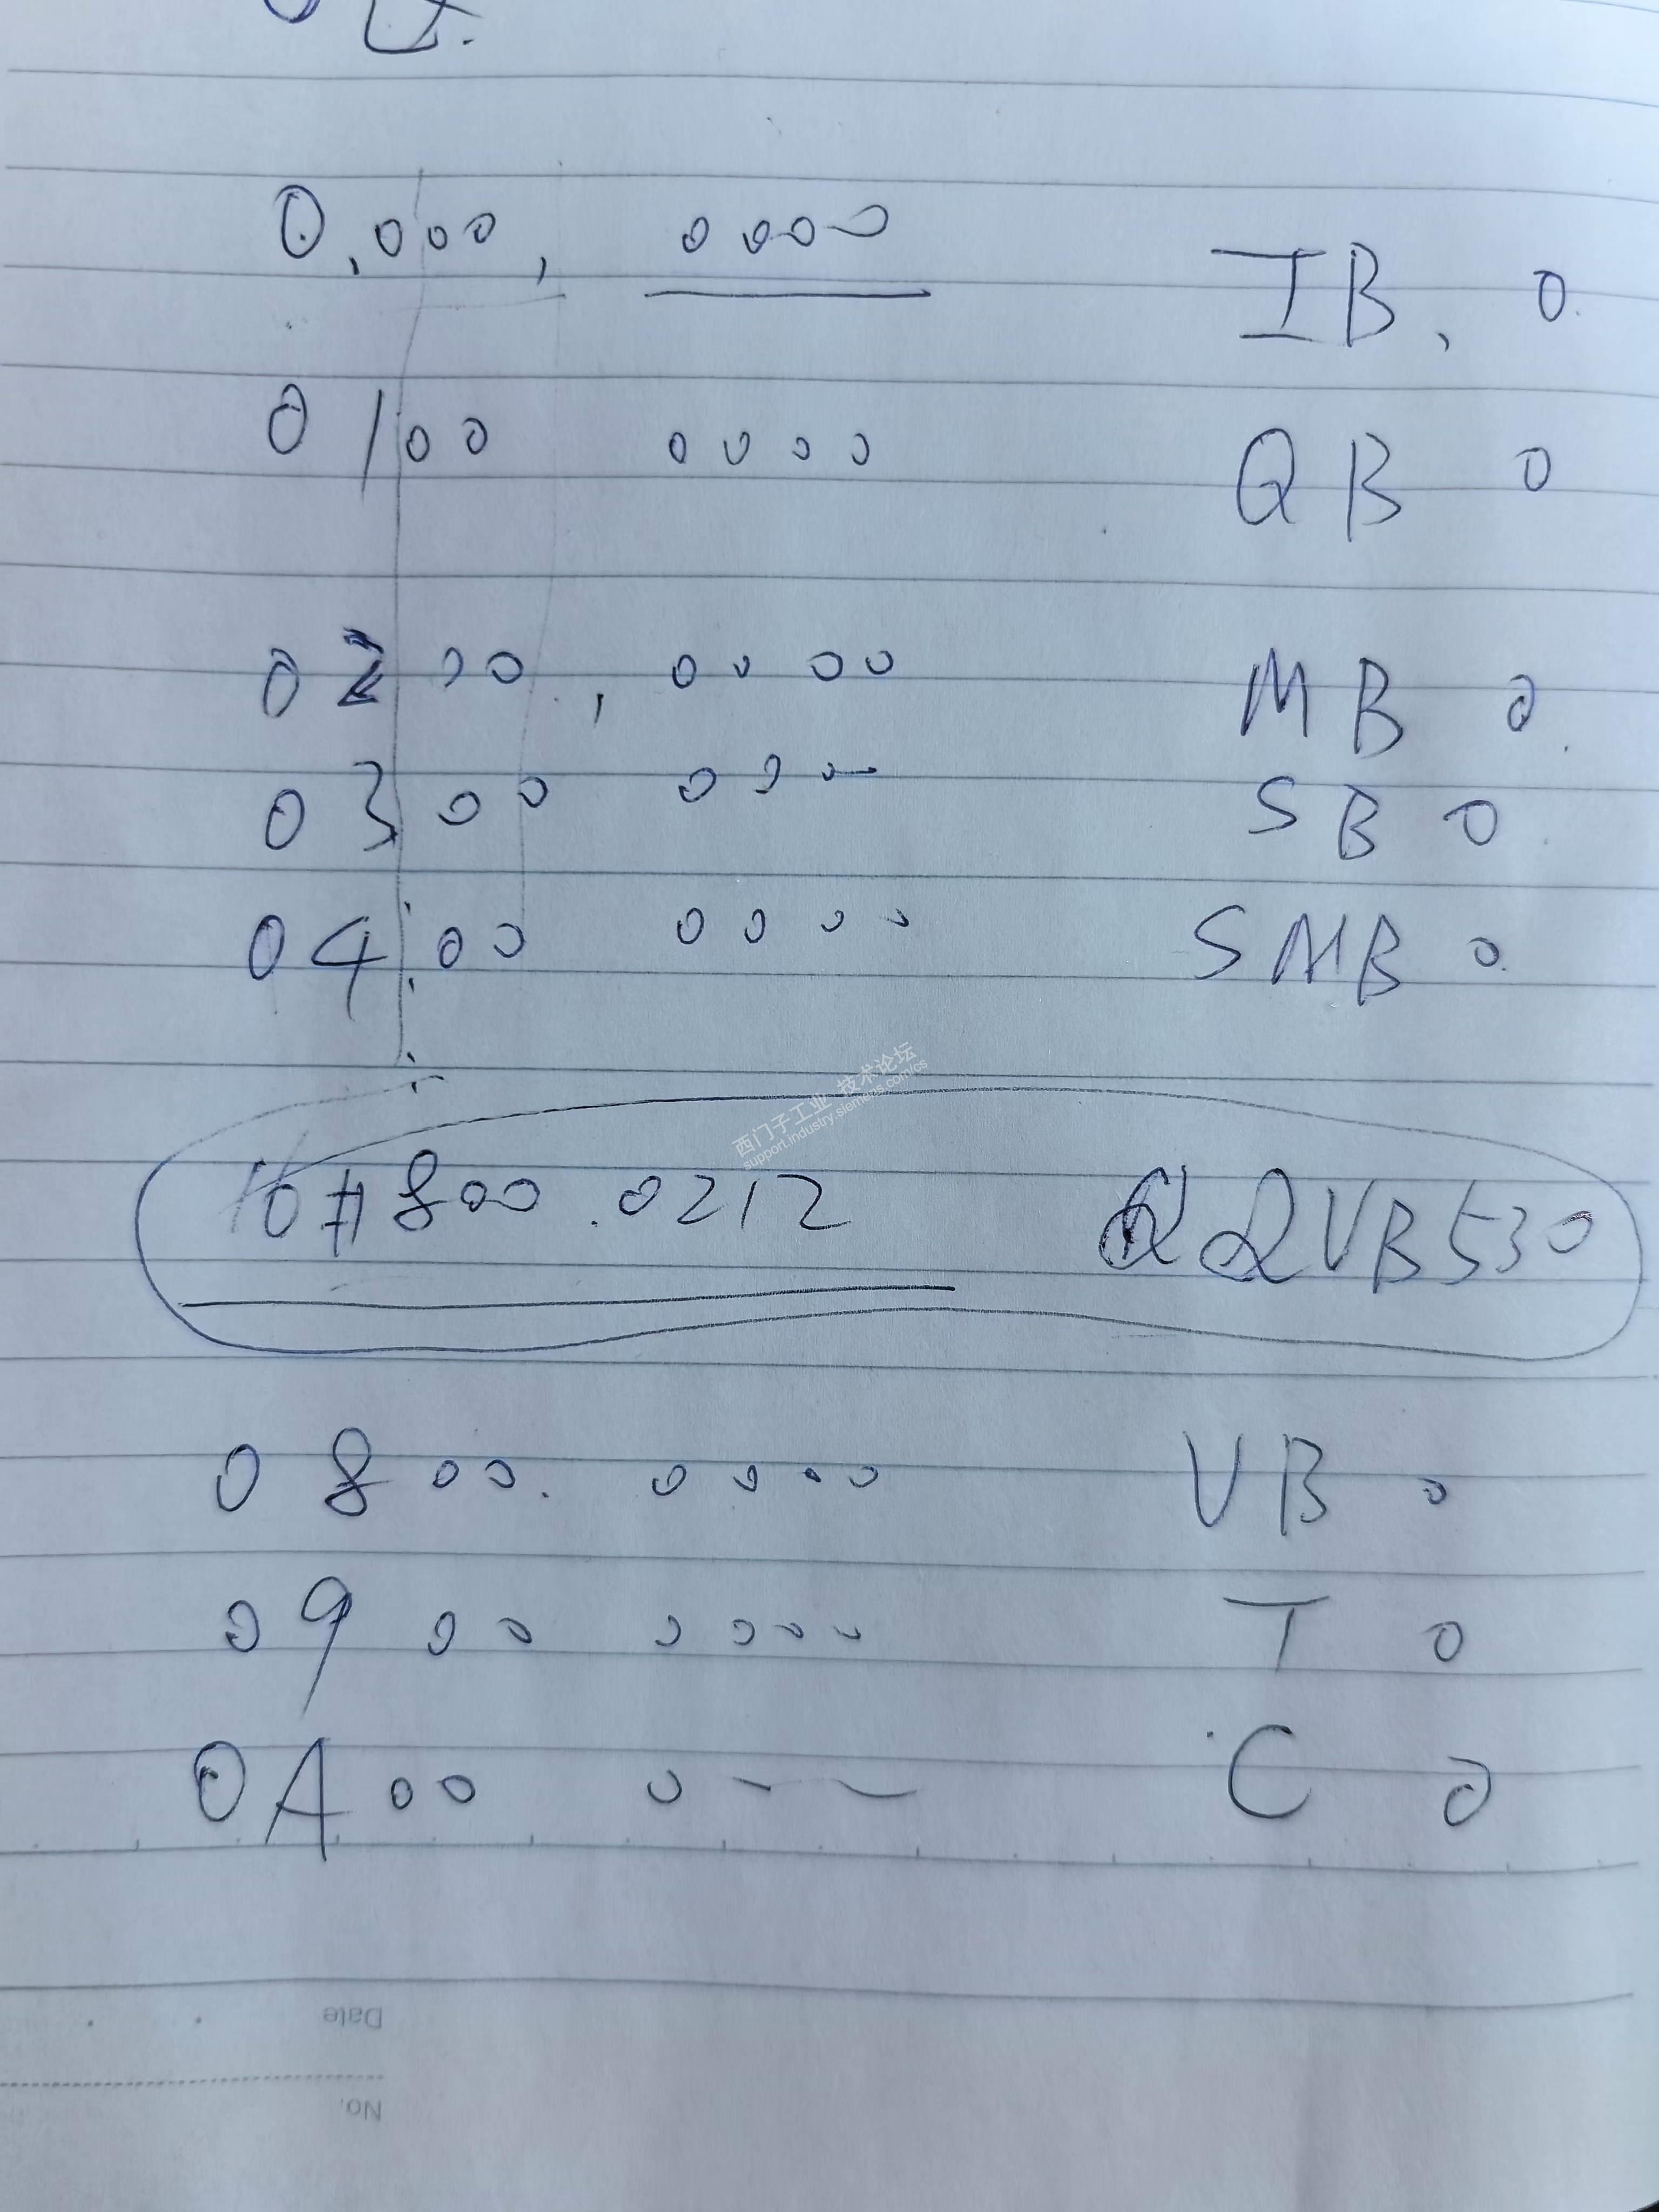 0,000, 0000 IB, 0
0100 0000 QB 0
0200, 0000 MB 0
0300 00 SB 0
04.00 0000 SMB 0
西门子工业 技术论坛
support.industry.siemens.com/cs
16#800.0212 VB530
0800. 0000 VB 0
0900 0000 T 0
0A00 0 C 0
Date
No.